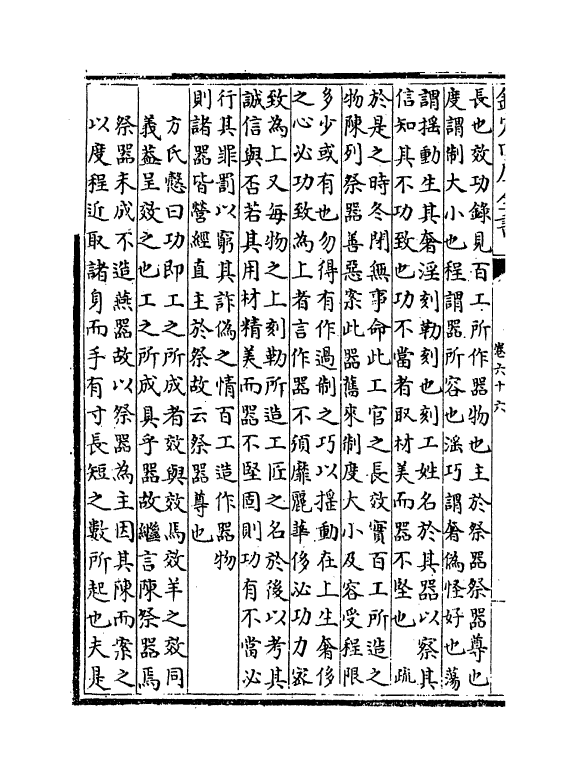 欽定四庫全書
卷六十六
長也效功錄見百工所作器物也主於祭器祭器尊也
度謂制大小也程謂器所容也淫巧謂奢偽怪好也蕩
謂揺動生其奢淫刻勒刻也刻工姓名於其器以察其
信知其不功致也功不當者取材美而器不堅也　疏
於是之時冬閉無事命此工官之長效實百工所造之
物陳列祭器善惡案此器舊來制度大小及容受程限
多少或有也勿得有作過制之巧以揺動在上生奢侈
之心必功致為上者言作器不須靡麗華侈必功力宻
致為上又每物之上刻勒所造工匠之名於後以考其
誠信與否若其用材精美而器不堅固則功有不當必
行其罪罰以窮其詐偽之情百工造作器物
則諸器皆營經直主於祭故云祭器尊也
方氏慤曰功即工之所成者效與效馬效羊之效同
義葢呈效之也工之所成具乎器故繼言陳祭器焉
祭器未成不造燕器故以祭器為主因其陳而案之
以度程近取諸身而手有寸長短之數所起也夫是